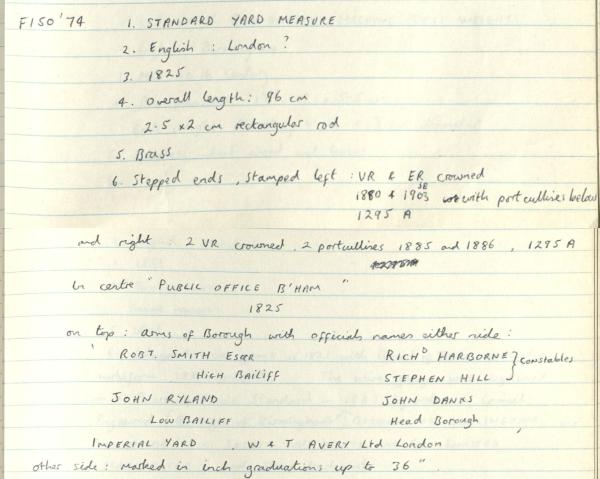 F150'74 1. STANDARD YARD MEASURE
2. English : London ?
3. 1825
4. Overall length: 96 cm
2.5 x 2 cm rectangular rod
5. Brass
6. Stepped ends, Stamped left : VR & ER crowned
1880 & 1903 SE with portcullises below
1295 A
and right : 2 VR crowned, 2 portcullises 1885 and 1886, 1295 A
In centre "PUBLIC OFFICE B'HAM"
1825
on top : arms of Borough with officials names either side :
ROBT. SMITH Esqr RICHD HARBORNE } Constables
HIGH BAILIFF STEPHEN HILL
JOHN RYLAND JOHN DANKS
LOW BAILIFF Head Borough
IMPERIAL YARD. W & T AVERY Ltd London
other side : marked in inch graduations up to 36".